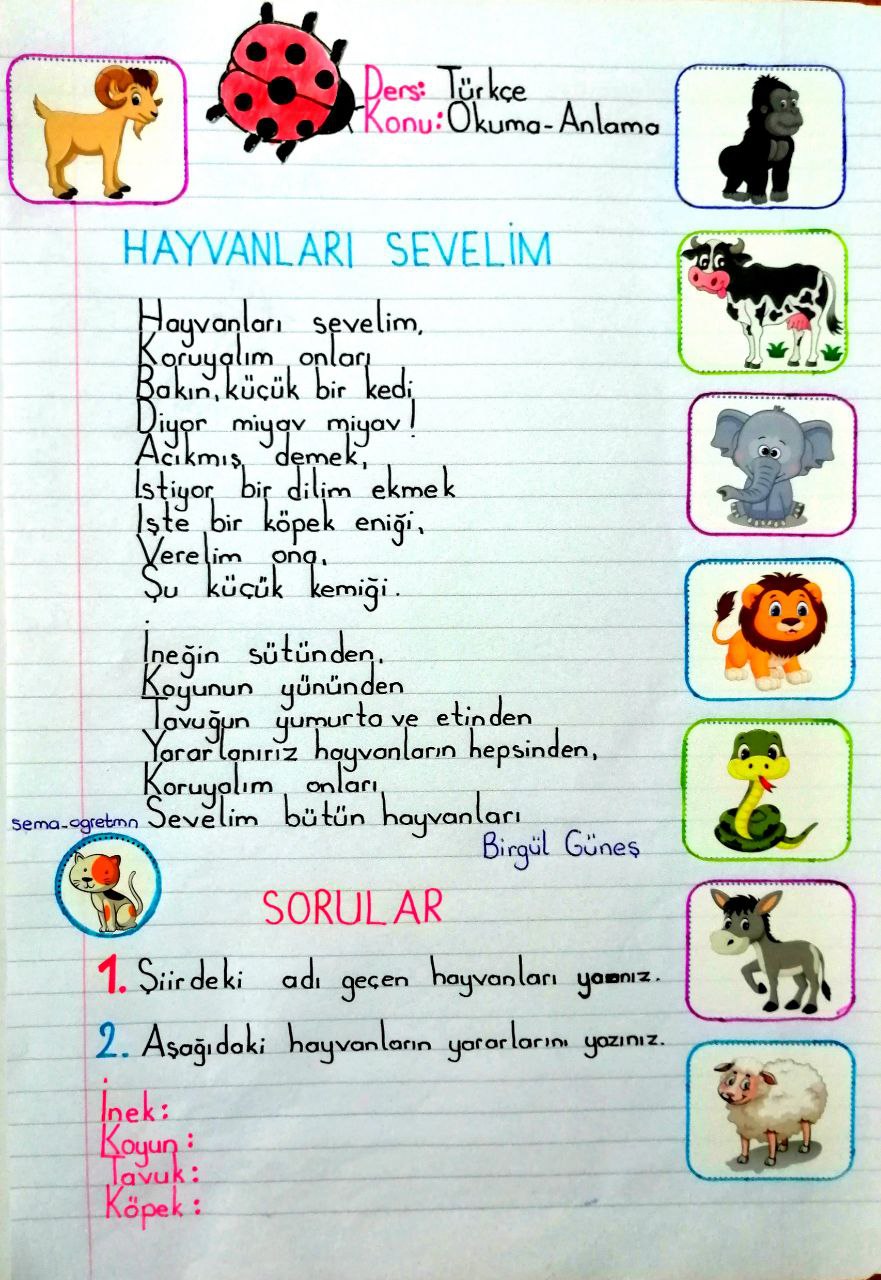 Ders: Türkçe
Konu: Okuma-Anlama
HAYVANLARI SEVELİM
Hayvanları sevelim,
Koruyalım onları
Bakın, küçük bir kedi
Diyor miyav miyav!
Acıkmış demek,
İstiyor bir dilim ekmek
İşte bir köpek eniği,
Verelim ona,
Şu küçük kemiği.
İneğin sütünden,
Koyunun yününden
Tavuğun yumurta ve etinden
Yararlanırız hayvanların hepsinden,
Koruyalım onları
Sevelim bütün hayvanları
sema_ogretmn
Birgül Güneş
SORULAR
1. Şiirdeki adı geçen hayvanları yazınız.
2. Aşağıdaki hayvanların yararlarını yazınız.
İnek:
Koyun:
Tavuk:
Köpek: